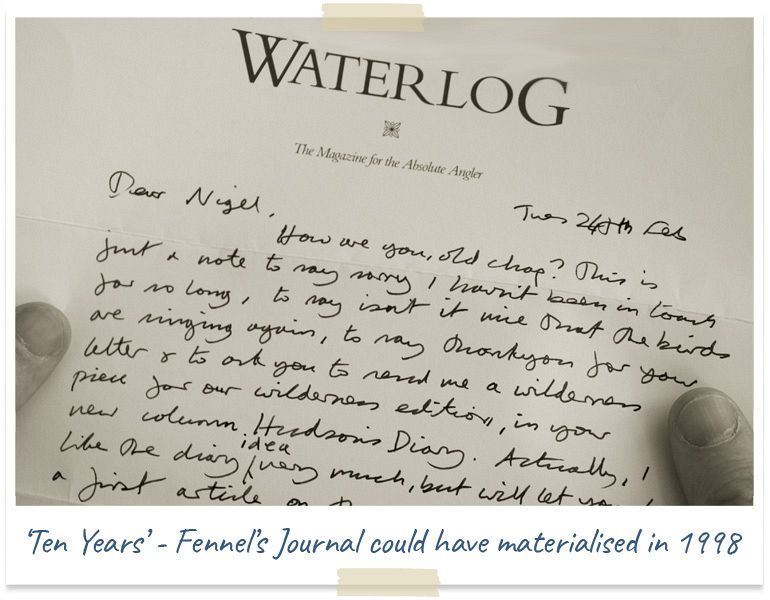 WATERLOG
The Magazine for the Absolute Angler
Dear Nigel,
Tues 24th Feb
How are you, old chap? This is
just a note to say sorry I havn't been in touch
for so long, to say isn't it nice that the birds
are singing again, to say thankyou for your
letter & to ask you to send me a wilderness
piece for our wilderness edition, in your
new column, Hudson's Diary. Actually, I
like the diary idea very much, but will let you
a first article on
'Ten Years' - Fennel's Journal could have materialised in 1998